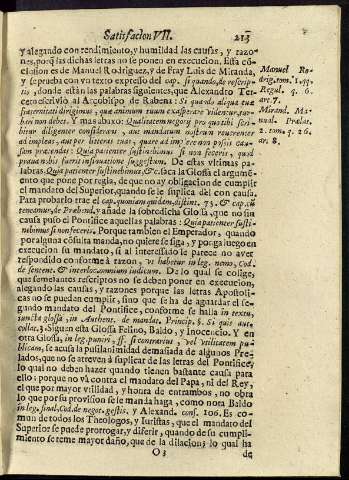 Satisfacion VII. 213
y alegando con rendimiento, y humildad las causas, y razo-
nes, porq̃ las dichas letras no se ponen en execucion. Esta cõ-
clusion es de Manuel Rodriguez, y de Fray Luis de Miranda,
y se prueba con vn texto expresso del cap. si quando, de rescrip-
tis, donde están las palabras siguientes, que Alexandro Ter-
cero escrivió al Arçobispo de Rabena: Si quando aliqua tuæ
fraternitati dirigimus, quæ animum tuum exasperare videntur, tur-
bari non debes. Y mas abaxo: Qualitatem negotij pro quo tibi scri-
bitur diligenter considerans, aut mandatum nostrum reverenter
adimpleas, aut per litteras tuas, quare adimplere non possis cau-
sam prætendas: Quia patienter sustinebimus si non feceris, quod
prava nobis fuerit insinuatione suggestum. De estas vltimas pa-
labras, Quia patienter sustinebimus, &c. saca la Glossa el argumẽ-
to que pone por regla, de que no ay obligacion de cumplir
el mandato del Superior, quando se le suplica del con causa.
Para probarlo trae el cap. quoniam quidem, distint. 73. & cap. cũ
teneamur, de Præbend. y añade la sobredicha Glossa, que no sin
causa puso el Pontifice aquellas palabras: Quia patienter susti-
nebimus si non feceris. Porque tambien el Emperador, quando
por alguna cõsulta manda, no quiere se siga, y ponga luego en
execucion su mandato, si al interessado le parece no aver
respondido conforme à razon, vt habetur in leg. nemo, Cod.
de sentent. & interloc. omnium iudicum. De lo qual se colige,
que semejantes rescriptos no se deben poner en execucion,
alegando las causas, y razones porque las letras Apostoli-
cas no se puedan cumplir, sino que se ha de aguardar el se-
gundo mandato del Pontifice, conforme se halla in textu,
iuncta glossa, in Authent. de mandat. Princip. §. Si quis aut,
collat. 3. Siguen esta Glossa Felino, Baldo, y Inocencio. Y en
otra Glossa, in leg. puniri, ff. si contrarius, vel vtilitatem pu-
blicam, se acusa la pusilanimidad demasiada de algunos Pre-
lados, que no se atreven à suplicar de las letras del Pontifice,
lo qual no deben hazer quando tienen bastante causa para
ello: porque no và contra el mandato del Papa, ni del Rey,
el que por mayor vtilidad, y honra de entrambos, no obra
lo que por su provision se le manda haga, como nota Baldo
in leg. final. Cod. de negot. gestis, y Alexand. cons. 106. Es co-
mun de todos los Theologos, y Iuristas, que el mandato del
Superior se puede prorrogar, y diferir, quando de su cumpli-
miento se teme mayor daño, que de la dilacion; lo qual ha
O 3 de
Manuel Ro-
drig. tom. 1. qq.
Regul. q. 6.
art. 7.
Mirand. Ma-
nual. Prelat.
2. tom. q. 26.
ar. 8.